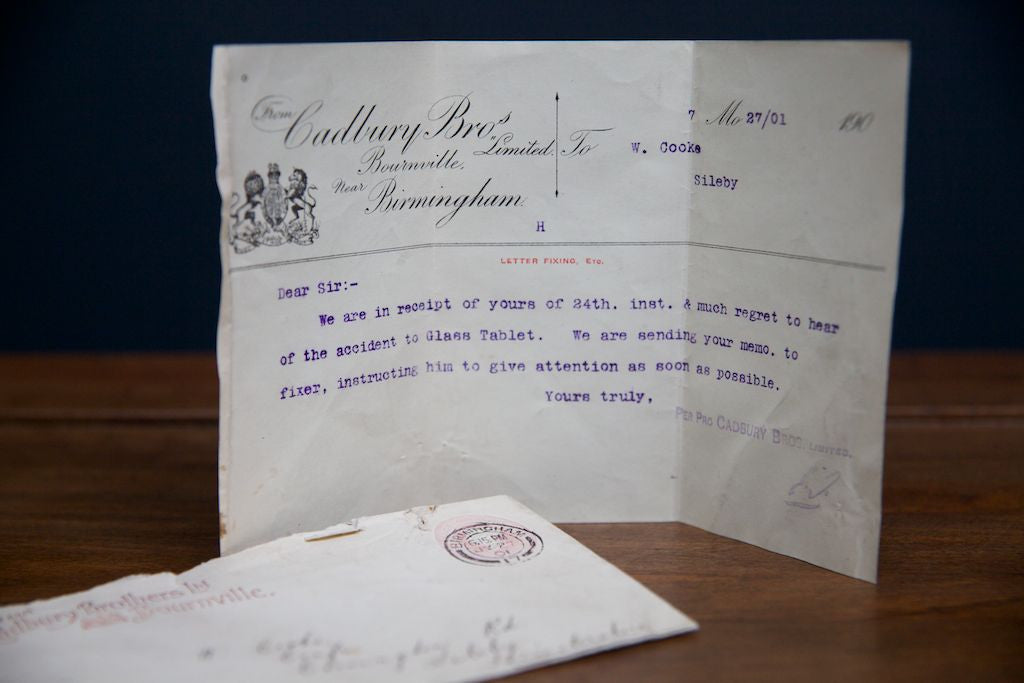 From
Cadbury Bros
Limited. To
Bournville.
Near
Birmingham.
7 Mo 27/01 190
W. Cooke
Sileby
H
LETTER FIXING, ETC.
Dear Sir:-
We are in receipt of yours of 24th. inst. & much regret to hear
of the accident to Glass Tablet. We are sending your memo. to
fixer, instructing him to give attention as soon as possible.
Yours truly,
PER PRO CADBURY BROS. LIMITED.
BIRMINGHAM
6.15 PM
01
17
Cadbury Brothers Ld
Bournville.